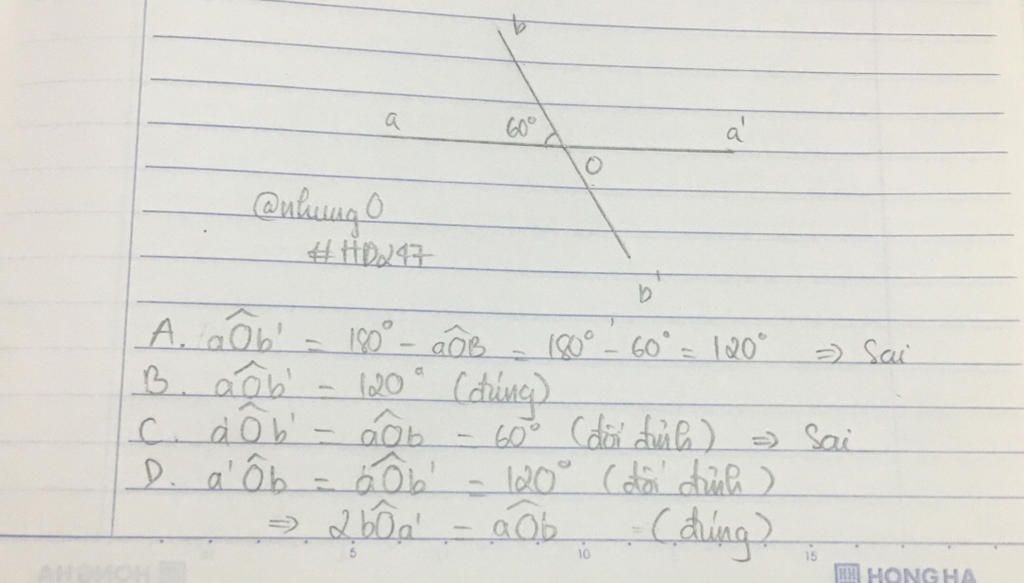 b
a 60° a'
O
@nhung0
#HD247
b'
A. aÔb' = 180° - aÔB = 180° - 60° = 120° ⇒ Sai
B. aÔb' = 120° (đúng)
C. a'Ôb' = aÔb = 60° (đối đỉnh) ⇒ Sai
D. a'Ôb = aÔb' = 120° (đối đỉnh)
⇒ 2bÔa' = aÔb (đúng)
5 10 15
HH HONG HA